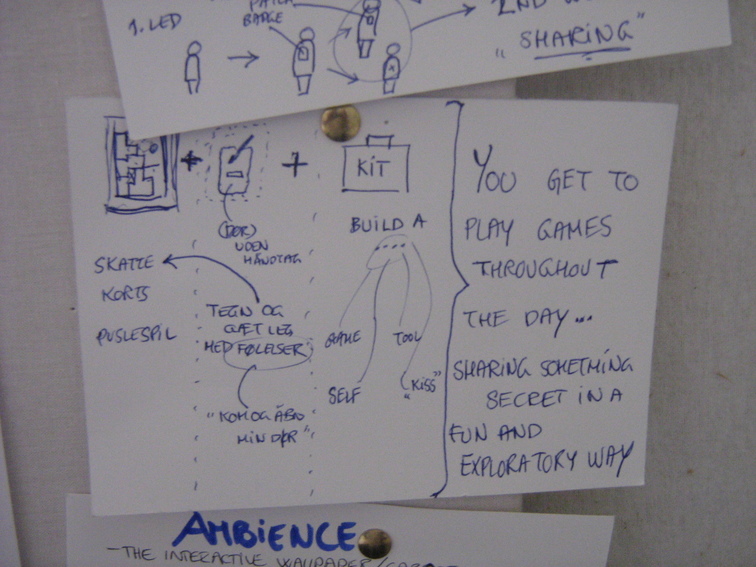 1. LED
PATCH
BADGE
2ND
"SHARING"
+
+
KIT
(DØR)
UDEN
HÅNDTAG
SKATTE
KORTS
PUSLESPIL
TEGN OG
GÆT LEG
MED FØLELSER
"KOM OG ÅBN
MIN DØR"
BUILD A
....
GAME
TOOL
SELF
"KISS"
YOU GET TO
PLAY GAMES
THROUGHOUT
THE DAY...
SHARING SOMETHING
SECRET IN A
FUN AND
EXPLORATORY WAY
AMBIENCE
- THE INTERACTIVE WALLPAPER/